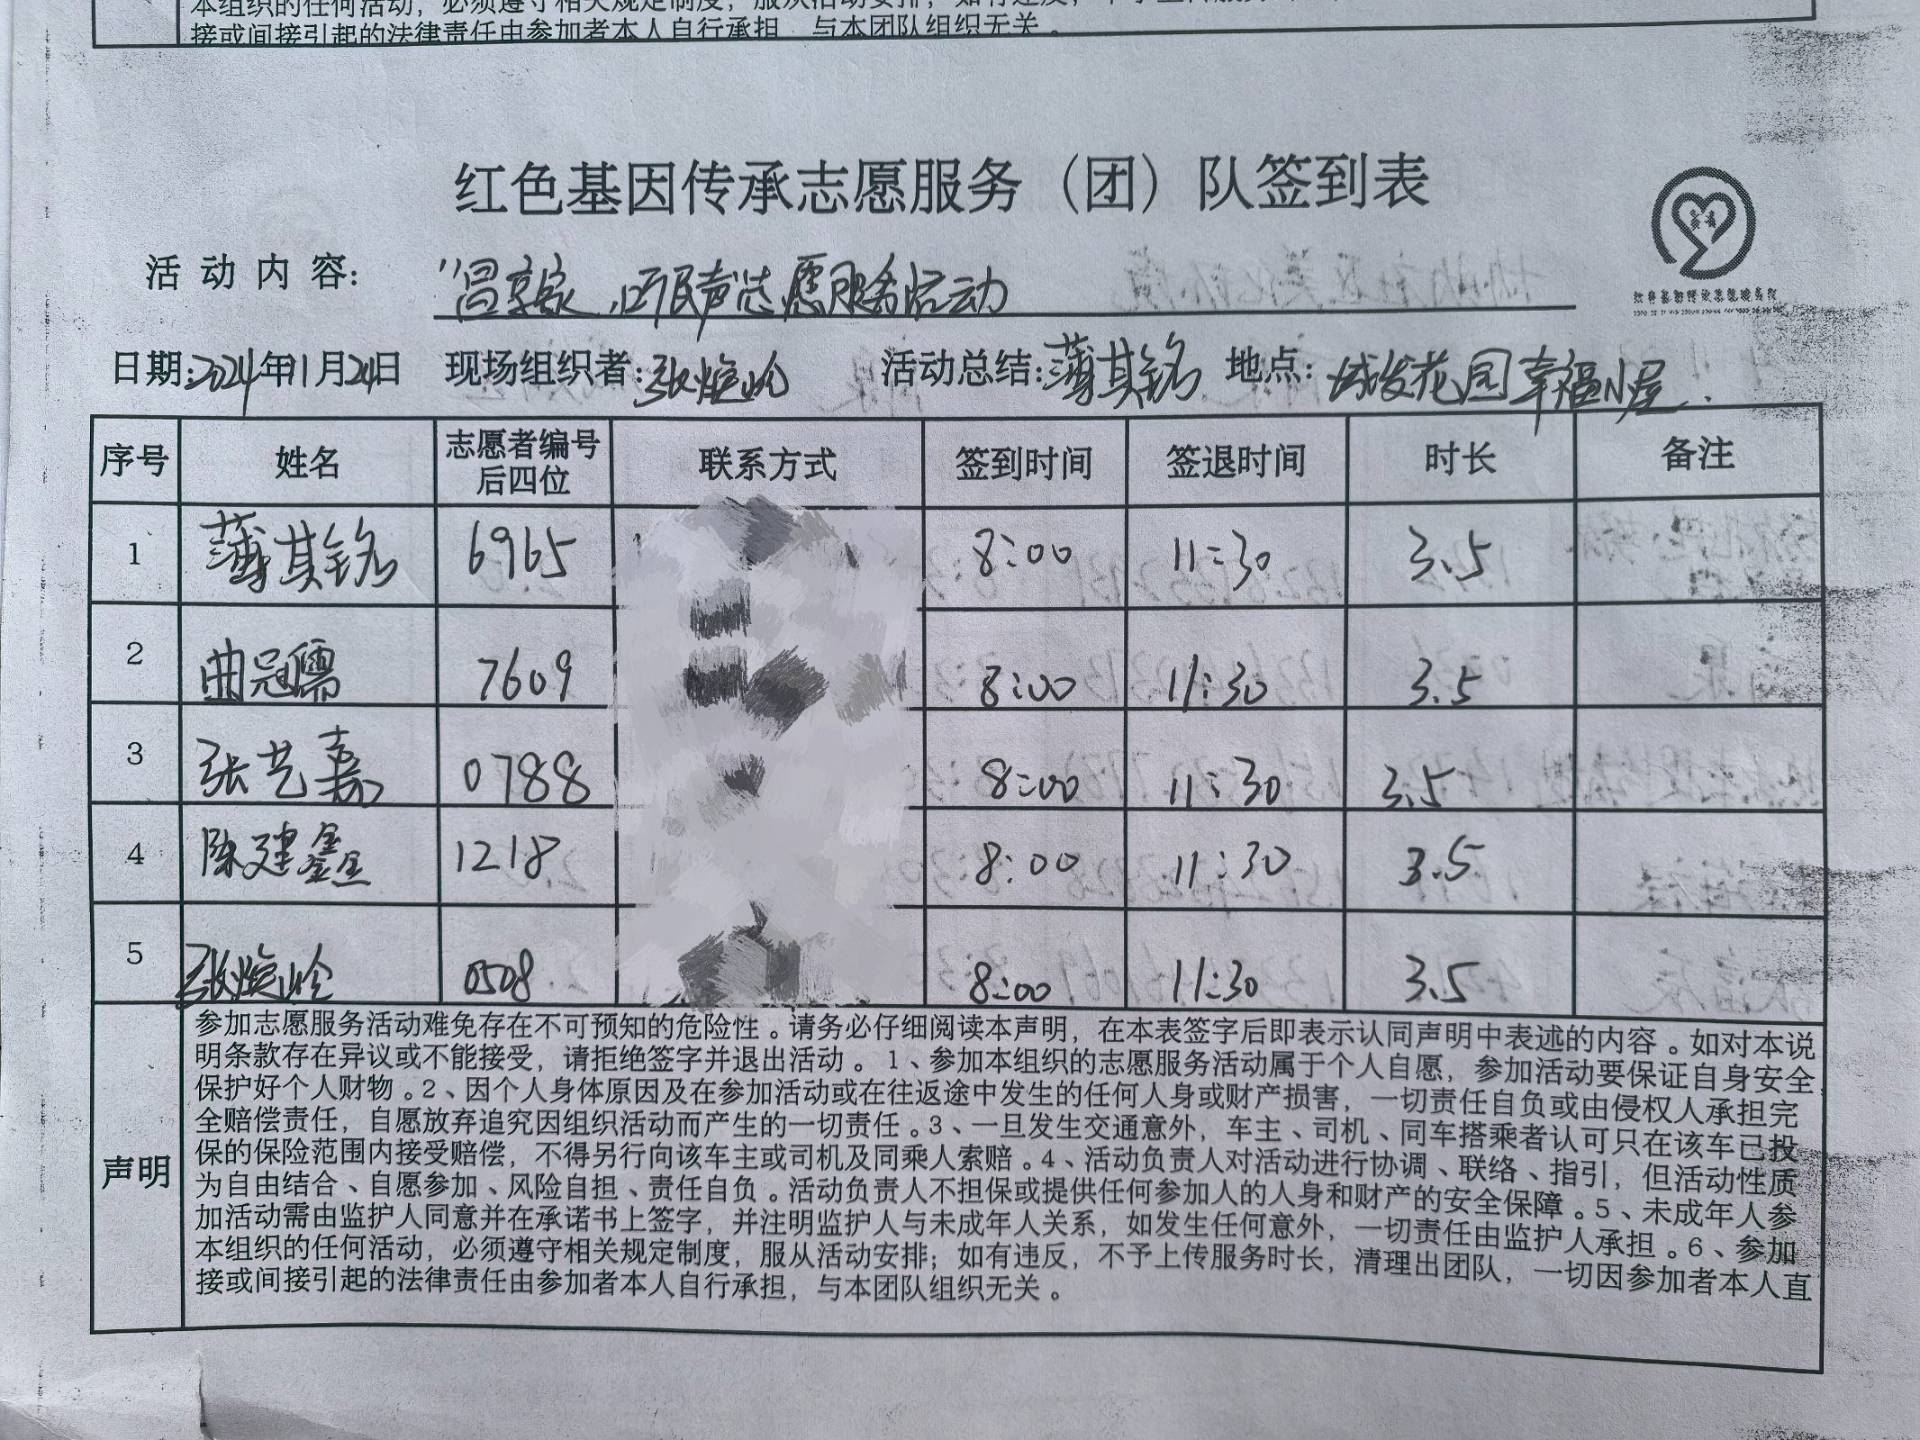 本组织的任何活动，必须遵守相关规定制度，服从活动安排；如有违反，不予上传服务
接或间接引起的法律责任由参加者本人自行承担，与本团队组织无关。
红色基因传承志愿服务（团）队签到表
活动内容：听民声志愿服务活动
日期：2024年11月24日 现场组织者：张 活动总结：薄其铭 地点：城发花园幸福小屋.
序号 姓名 志愿者编号后四位 联系方式 签到时间 签退时间 时长 备注
1 薄其铭 6965 8:00 11:30 3.5
2 曲冠儒 7609 8:00 11:30 3.5
3 张艺嘉 0788 8:00 11:30 3.5
4 陈建鑫 1218 8:00 11:30 3.5
5 张 0508 8:00 11:30 3.5
声明
参加志愿服务活动难免存在不可预知的危险性。请务必仔细阅读本声明，在本表签字后即表示认同声明中表述的内容。如对本说
明条款存在异议或不能接受，请拒绝签字并退出活动。1、参加本组织的志愿服务活动属于个人自愿，参加活动要保证自身安全，
保护好个人财物。2、因个人身体原因及在参加活动或在往返途中发生的任何人身或财产损害，一切责任自负或由侵权人承担完
全赔偿责任，自愿放弃追究因组织活动而产生的一切责任。3、一旦发生交通意外，车主、司机、同车搭乘者认可只在该车已投
保的保险范围内接受赔偿，不得另行向该车主或司机及同乘人索赔。4、活动负责人对活动进行协调、联络、指引，但活动性质
为自由结合、自愿参加、风险自担、责任自负。活动负责人不担保或提供任何参加人的人身和财产的安全保障。5、未成年人参
加活动需由监护人同意并在承诺书上签字，并注明监护人与未成年人关系，如发生任何意外，一切责任由监护人承担。6、参加
本组织的任何活动，必须遵守相关规定制度，服从活动安排；如有违反，不予上传服务时长，清理出团队，一切因参加者本人直
接或间接引起的法律责任由参加者本人自行承担，与本团队组织无关。